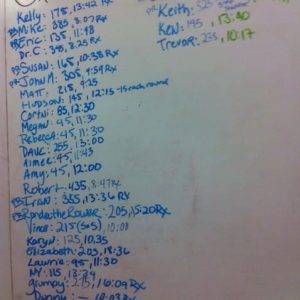 Kelly: 175, 13:42 Rx
Mike: 385, 8:07 Rx
Eric: 135, 11:48
Dr. C: 345, 8:25 Rx
SUSAN: 165, 10:38 Rx
John M: 305, 9:59 Rx
MATT: 215, 9:25
HUDSON: 145, 12:15 -15 each round
Cortni: 85, 12:30
Megan: 45, 11:30
Rebecca: 45, 11:30
DAVE: 255, 13:00
Aimee: 45, 11:43
Amy: 45, 12:00
Robert: 435, 8:47 Rx
IRAD: 355, 13:36 Rx
Rhonda the Rower: 205, 15:20 Rx
Vince: 215 (5x5) 10:00
Karyn: 125, 10:35
Elizabeth: 203, 18:36
Laurie: 95, 11:30
NY: 115, 13:24
Grumpy: 275, 16:09 Rx
Keith: 325
KEN: 195, 13:40
Trevor: 235, 10:17